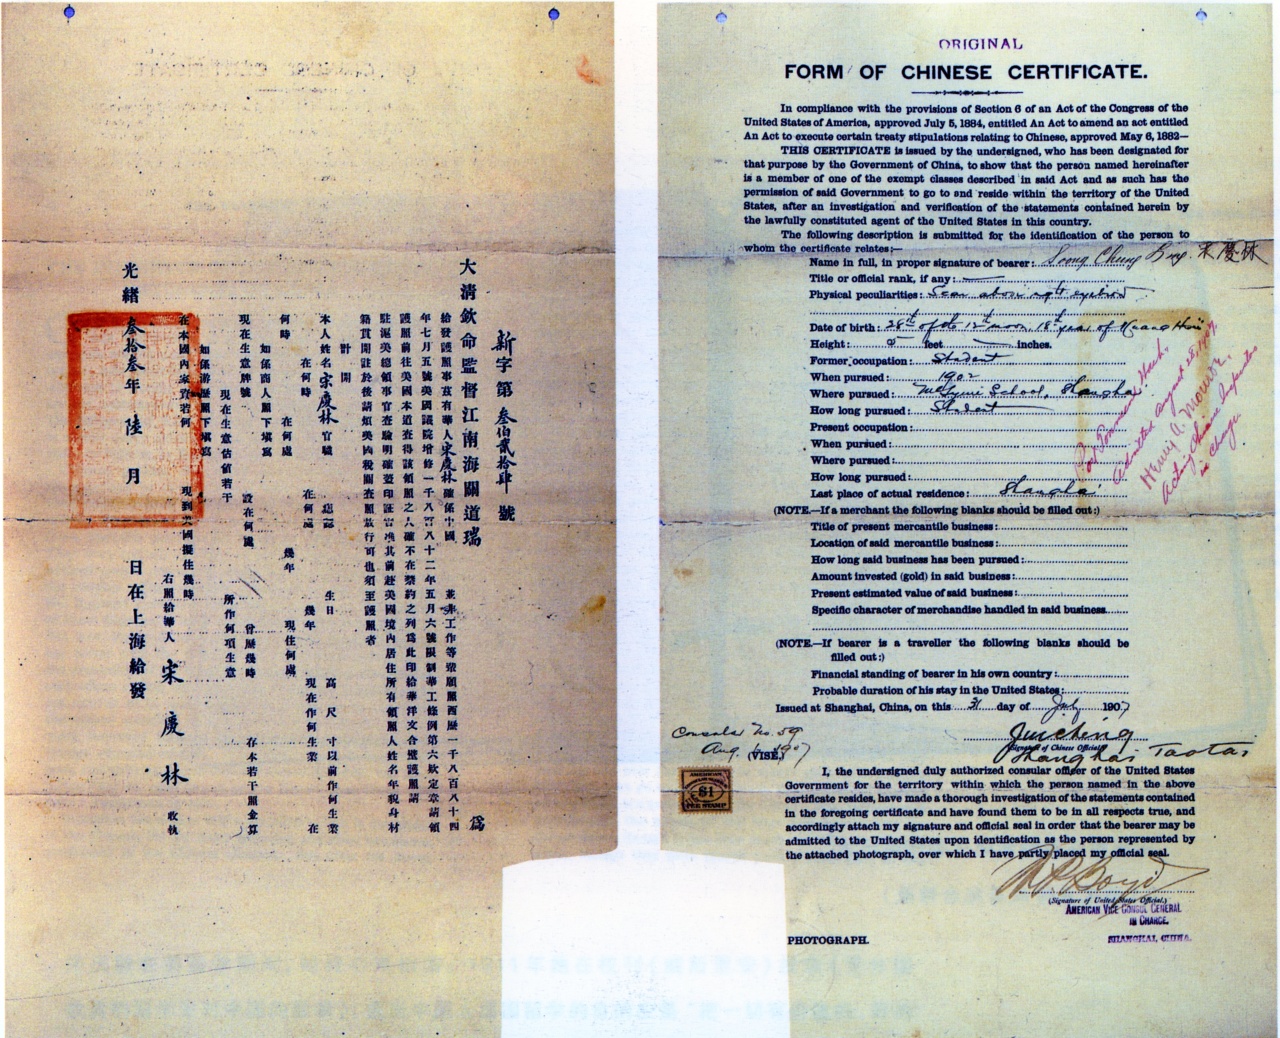 新字第叁伯貳拾肆號
大清欽命監督江南海關道瑞 為
給發護照事茲有華人宋慶林確係中國 並非工作等衆願照西歷一千八百八十四
年七月五號美國議院增修一千八百八十二年五月六號限制華工條例第六欵定章請領
護照前往美國本道查得該領照之人確不在禁約之列爲此印給華洋文合璧護照請
駐滬美總領事官查驗明確蓋印証 准其前赴美國境內居住所有領照人姓名年貌身材
籍貫開註於後請煩美國稅關查照放行可也須至護照者
計開
本人姓名宋慶林官職 生日 高 尺 寸以前作何生業
在何時 在何處 幾年 現在作何生業 在
何時 在何處 幾年 現住何處
如係商人照下填寫
現在生意牌號 設在何處 曾歷幾時 存本若干照金算
現在生意估值若干 所作何項生意
如係游歷照下填寫
在本國內家資若何 現到美國擬住幾時
右照給華人 宋慶林 收執
光緒叁拾叁年陸月 日在上海給發
ORIGINAL
FORM OF CHINESE CERTIFICATE.
In compliance with the provisions of Section 6 of an Act of the Congress of the
United States of America, approved July 5, 1884, entitled An Act to amend an act entitled
An Act to execute certain treaty stipulations relating to Chinese, approved May 6, 1882—
THIS CERTIFICATE is issued by the undersigned, who has been designated for
that purpose by the Government of China, to show that the person named hereinafter
is a member of one of the exempt classes described in said Act and as such has the
permission of said Government to go to and reside within the territory of the United
States, after an investigation and verification of the statements contained herein by
the lawfully constituted agent of the United States in this country.
The following description is submitted for the identification of the person to
whom the certificate relates:—
Name in full, in proper signature of bearer: Soong Chung Ling. 宋慶林
Title or official rank, if any:
Physical peculiarities: Scar above right eyebrow
Date of birth: 28th of the 12th moon, 18th year of Kuang Hsü
Height: 5 feet — inches.
Former occupation: Student
When pursued: 1902
Where pursued: McTyeire School, Shanghai
How long pursued: Student
Present occupation:
When pursued:
Where pursued:
How long pursued:
Last place of actual residence: Shanghai
Port Townsend Wash.
Admitted August 28, 1907.
Henry A. Monroe,
Acting Chinese Inspector
in Charge
(NOTE.—If a merchant the following blanks should be filled out:)
Title of present mercantile business:
Location of said mercantile business:
How long said business has been pursued:
Amount invested (gold) in said business:
Present estimated value of said business:
Specific character of merchandise handled in said business
(NOTE.—If bearer is a traveller the following blanks should be
filled out:)
Financial standing of bearer in his own country:
Probable duration of his stay in the United States:
Issued at Shanghai, China, on this 31 day of July 1907
Juicheng
(Signature of Chinese Official)
Shanghai Taotai
Consular No. 59
Aug. 1907
(VISÉ.)
AMERICAN
$1
FEE STAMP
I, the undersigned duly authorized consular officer of the United States
Government for the territory within which the person named in the above
certificate resides, have made a thorough investigation of the statements contained
in the foregoing certificate and have found them to be in all respects true, and
accordingly attach my signature and official seal in order that the bearer may be
admitted to the United States upon identification as the person represented by
the attached photograph, over which I have partly placed my official seal.
(Signature of United States Official.)
AMERICAN VICE CONSUL GENERAL
IN CHARGE.
SHANGHAI, CHINA.
PHOTOGRAPH.